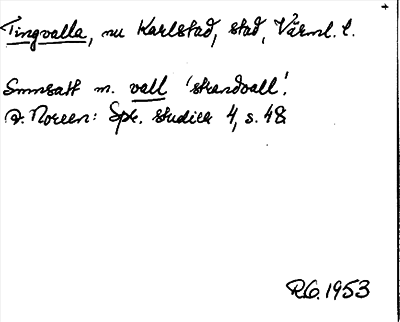 Tingvalla, nu Karlstad, stad, Värml. l.
Smnsatt m. vall 'strandvall'.
A. Noreen: Spr. studier 4, s. 48
R.G. 1953